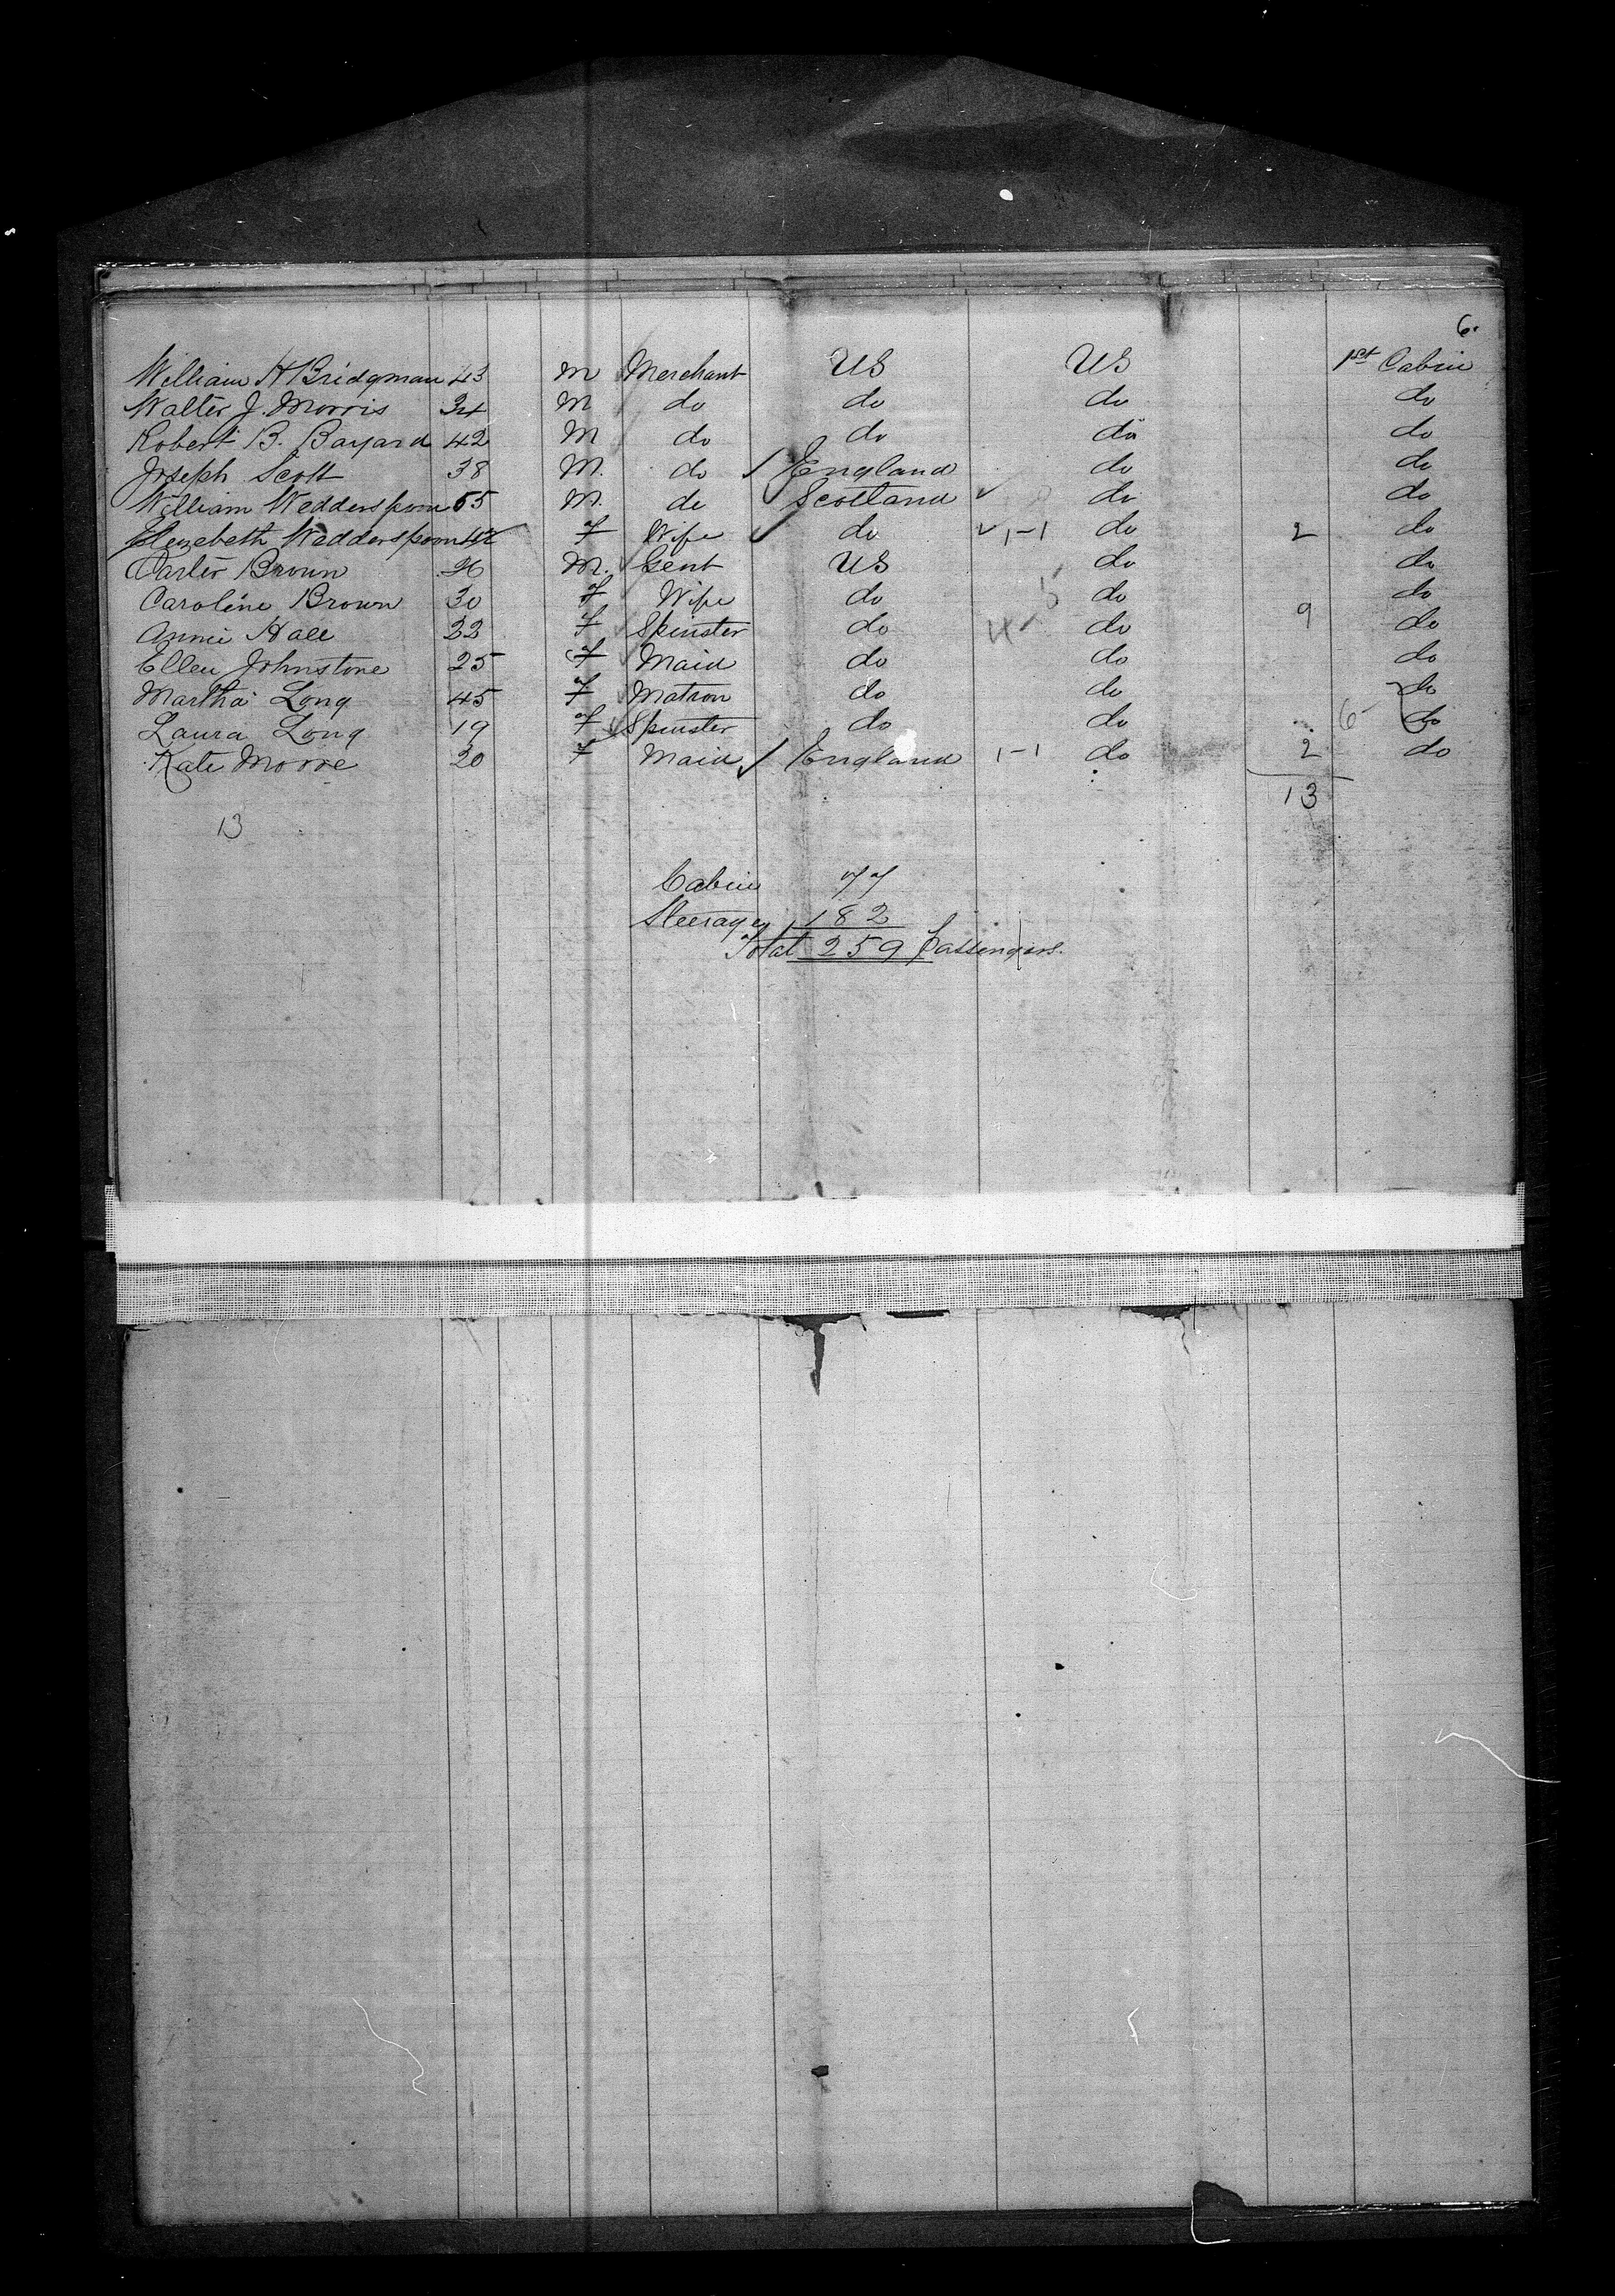 6.
William H Bridgman 43 M Merchant US US 1st Cabin
Walter J. Morris 34 M do do do do
Robert B. Bayard 42 M do do do do
Joseph Scott 38 M. do / England do do
William Wedderspoon 55 M. do Scotland ✓ do do
Elizabeth Wedderspoon 42 F Wife ✓ do ✓ 1-1 do 2 do
Carter Brown 36 M. Gent US do do
Caroline Brown 30 F Wife do do do
Annie Hall 22 F Spinster do 4- do 9 do
Ellen Johnstone 25 F Maid do do do
Martha Long 45 F Matron do do do
Laura Long 19 F Spinster do do 6- do
Kate Moore 20 F Maid ✓ / England 1-1 do 2 do
13
13
Cabin 77
Steerage 182
Total 259 Passengers.